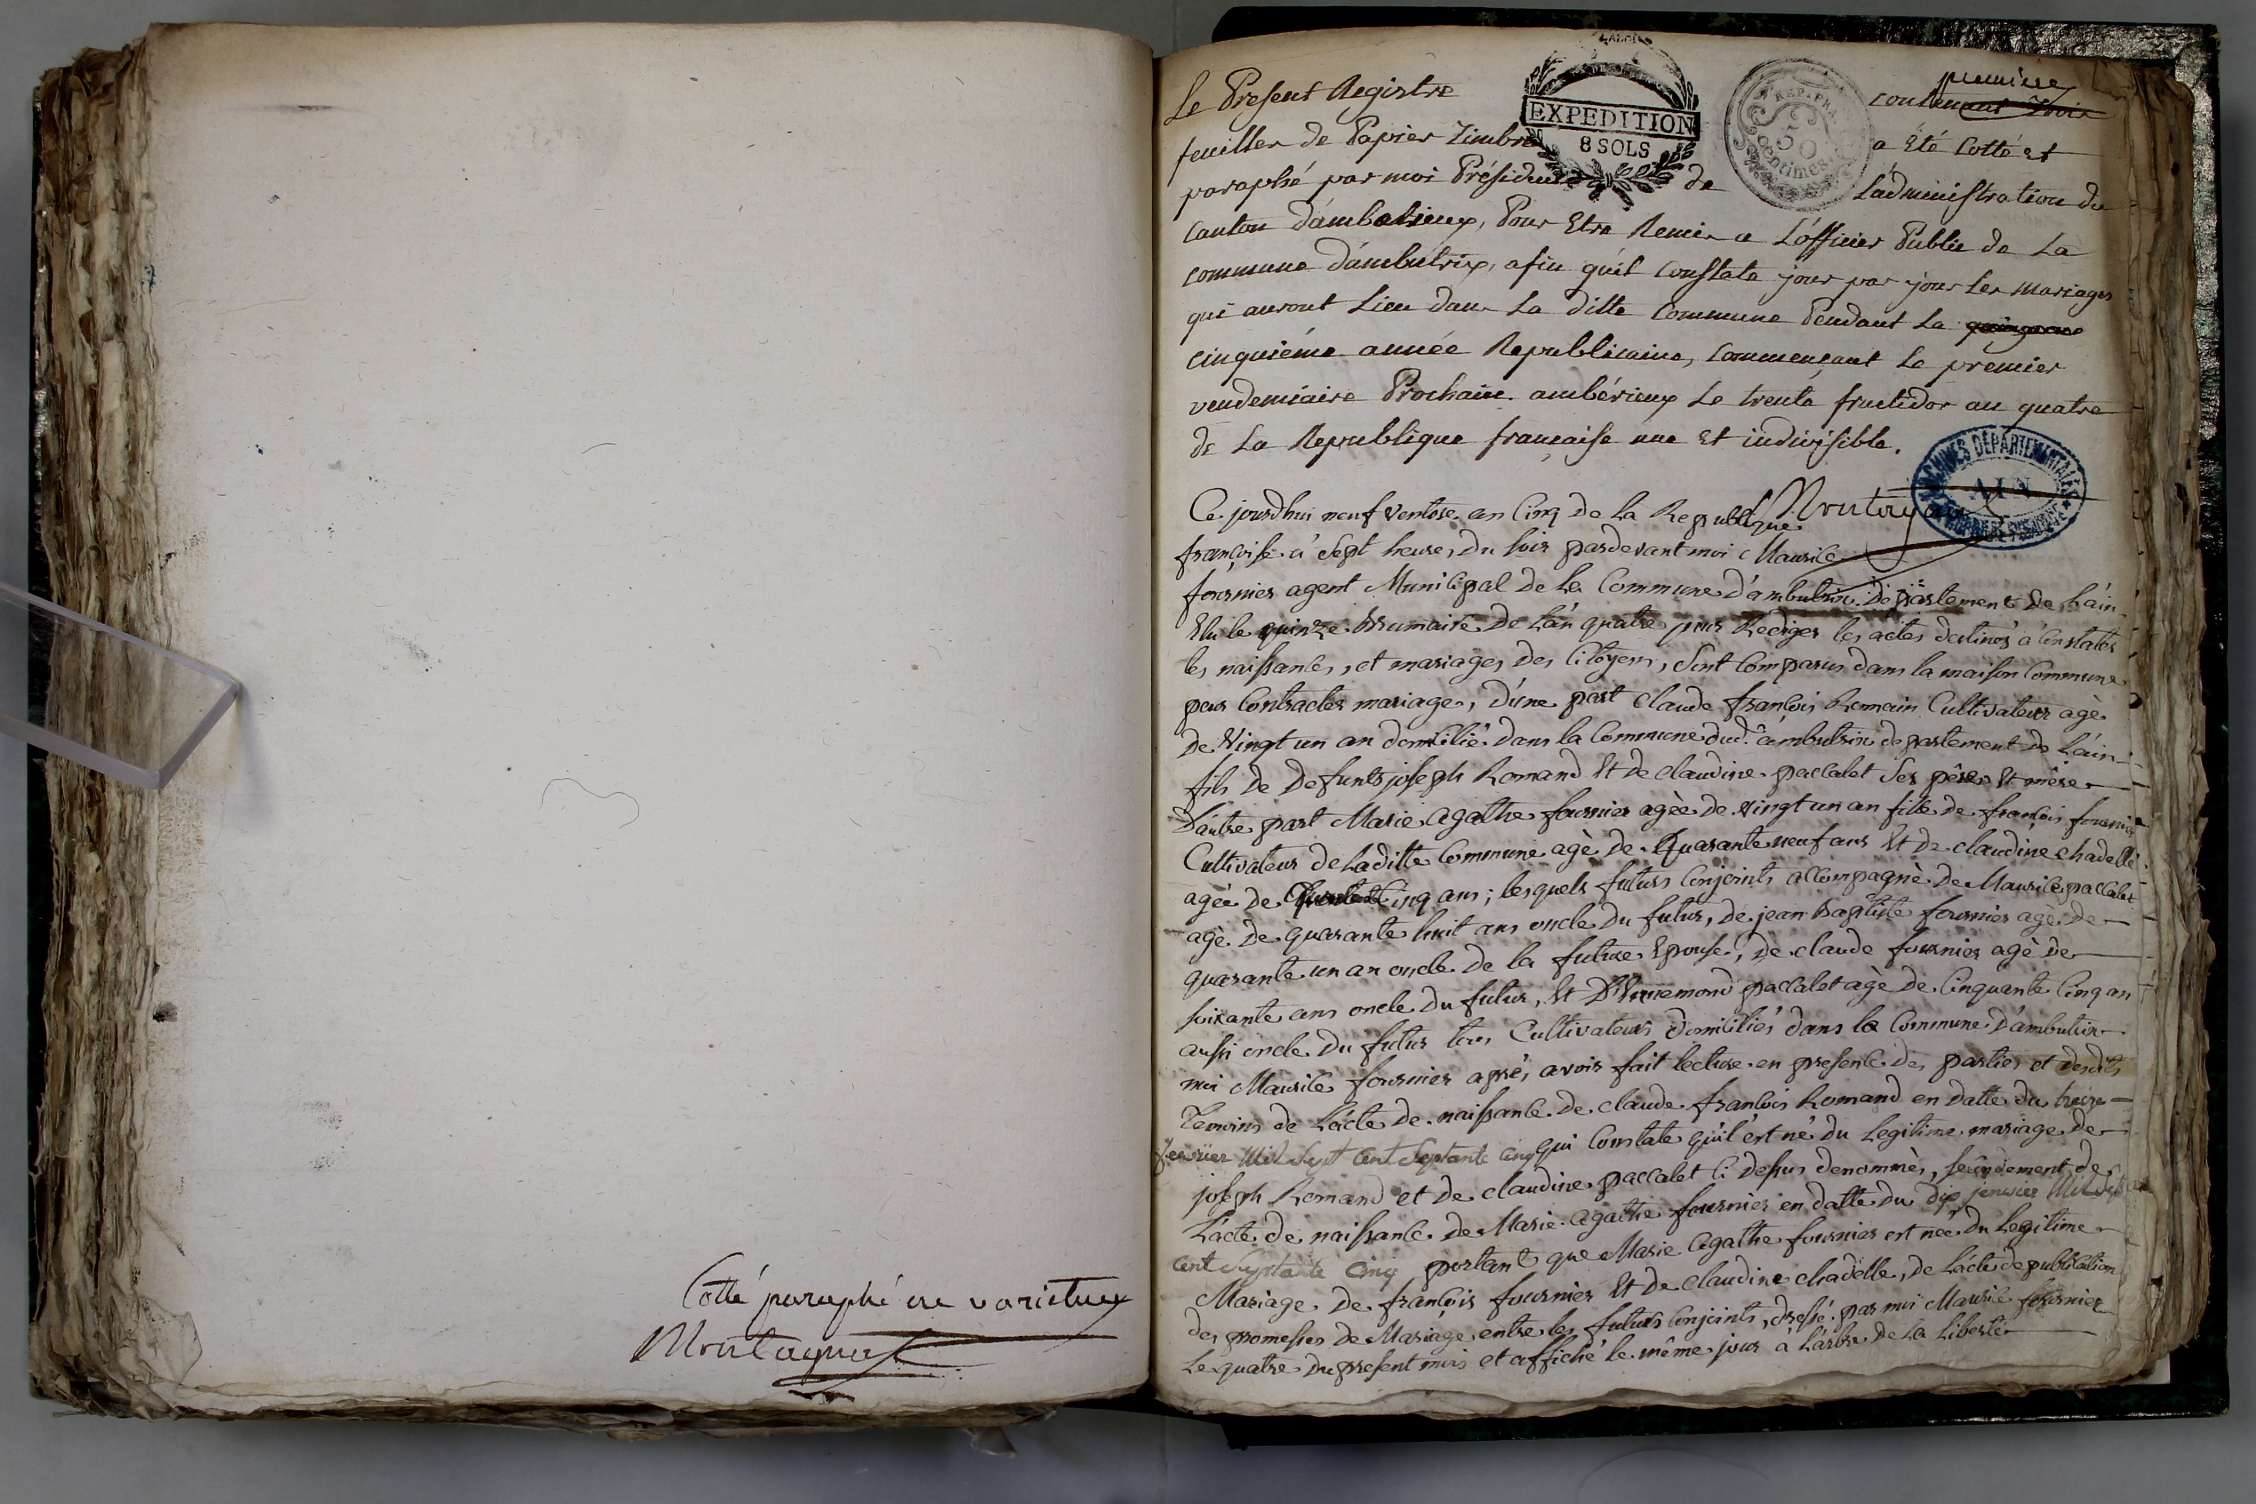 Cotté paraphé ne varietur
Montagnat
premiere
Le Present Registre contenant trois
feuilles de Papier Timbré a Eté Cotté et
paraphé par moi Président de L'administration du
Canton d'ambérieux, Pour Etre Remis a L'officier Public de La
commune d'ambutrix, afin qu'il Constate jour par jour Les Mariages
qui auront Lieu dans La ditte Commune Pendant La
cinquiéme année Republicaine, Commençant Le premier
vendemiaire Prochain. ambérieux Le trente fructidor an quatre
de La Republique française une Et indivisible.
EXPEDITION
8 SOLS
REP. FRA.
50
centimes
Montagnat
ARCHIVES DÉPARTEMENTALES
AIN
Ce jourdhui neuf Ventose an Cinq de La Republique
françoise à Sept heure, du Soir pardevant moi Maurice
fournier agent Municipal de La Commune d'ambutrix Departement de L'ain
Elu le quinze Brumaire De L'an quatre pour Rediger les actes destinés à Constater
les naissances, et mariages des Citoyens, Sont Comparus dans la maison Commune
pour Contracter mariage, D'une part Claude françois Romain Cultivateur agé
De Vingt un an domicilié dans la Commune dud. ambutrix departement de L'ain
fils de Defunts joseph Romand Et de Claudine paccalet Ses père Et mère
D'autre part Marie agathe fournier agèe de Vingt un an fille de françois fournier
Cultivateur de Laditte Commune agé de Quarante neuf ans Et de Claudine chadelle
agée de Cinq ans; lesquels futurs Conjoints accompagné de Maurice paccalet
agè de quarante huit ans oncle du futur, de jean Baptiste fournier agè de
quarante un an oncle de la future Epouse, de claude fournier agè de
soixante ans oncle du futur, Et D'Ennemond paccalet agè de Cinquante Cinq an
aussi oncle du futur tous Cultivateurs domiciliés dans la Commune D'ambutrix
moi Maurice fournier après avoir fait lecture en presence des parties et desdits
Temoins de L'acte de naissance de claude françois Romand en datte du treize
fevrier Mil Sept Cent Septante Cinq qui Constate qu'il est né du Legitime mariage de
joseph Romand et de claudine paccalet Ci dessus denommés, secondement de
L'acte de naissance de Marie agathe fournier en datte du dix jenvier Mil Sept
Cent Septante Cinq portant que Marie agathe fournier est née du Legitime
Mariage de françois fournier Et de Claudine chadelle, de L'acte de publication
des promesses de Mariage entre les futurs Conjoints, dressé par moi Maurice fournier
Le quatre du present mois et affiché le même jour à L'arbre de La Liberté